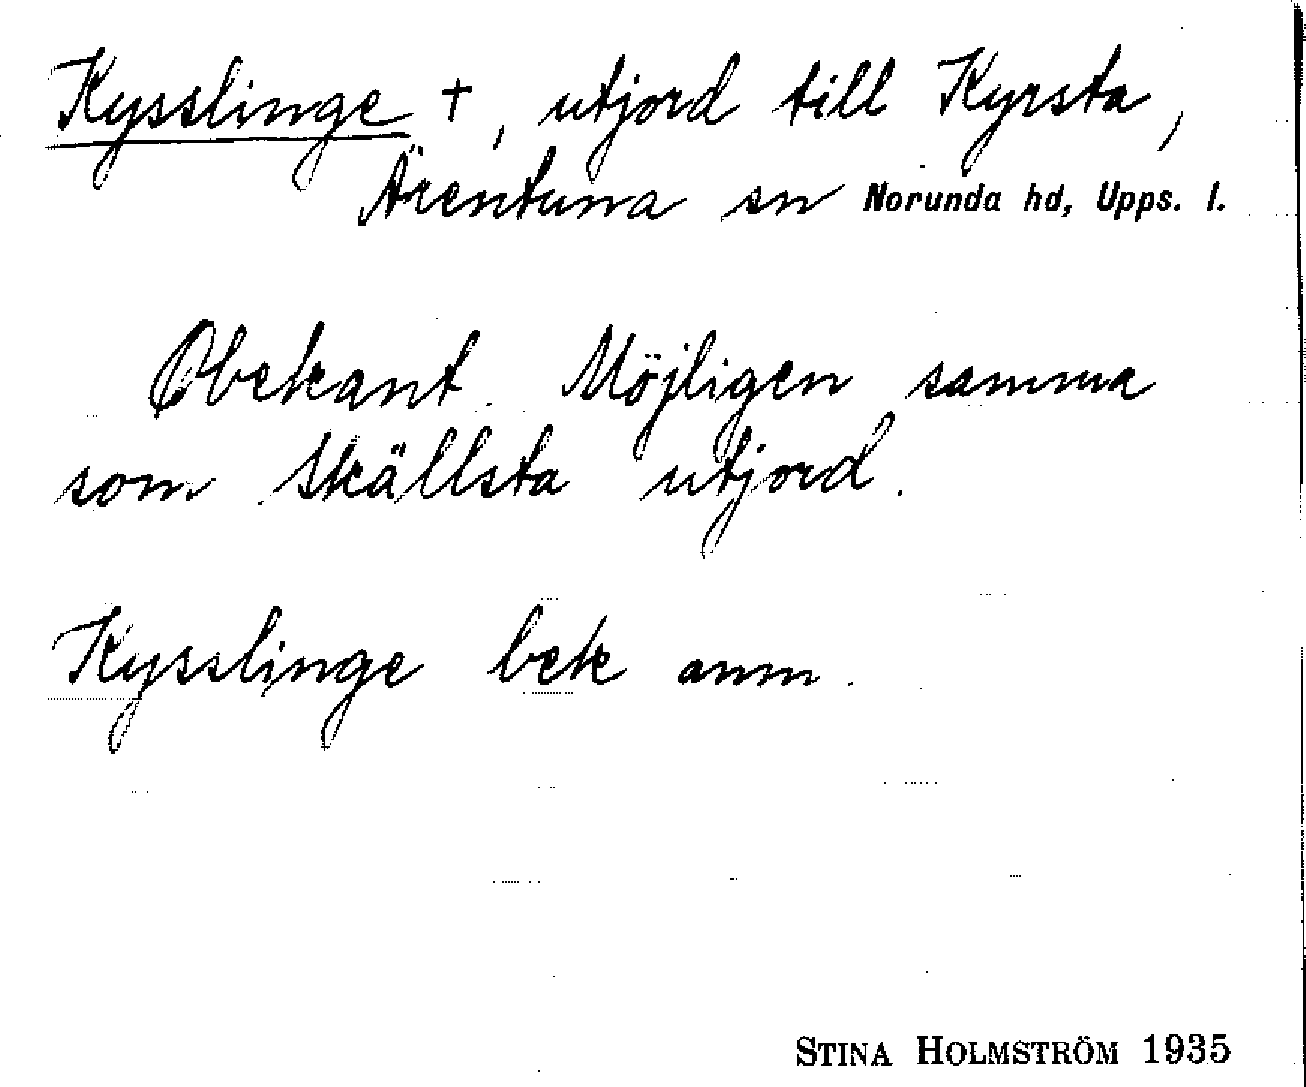 Kysslinge +, utjord till Kyrsta,
Ärentuna sn Norunda hd, Upps. l.
Obekant. Möjligen samma
som Skällsta utjord.
Kysslinge bek anm.
STINA HOLMSTRÖM 1935